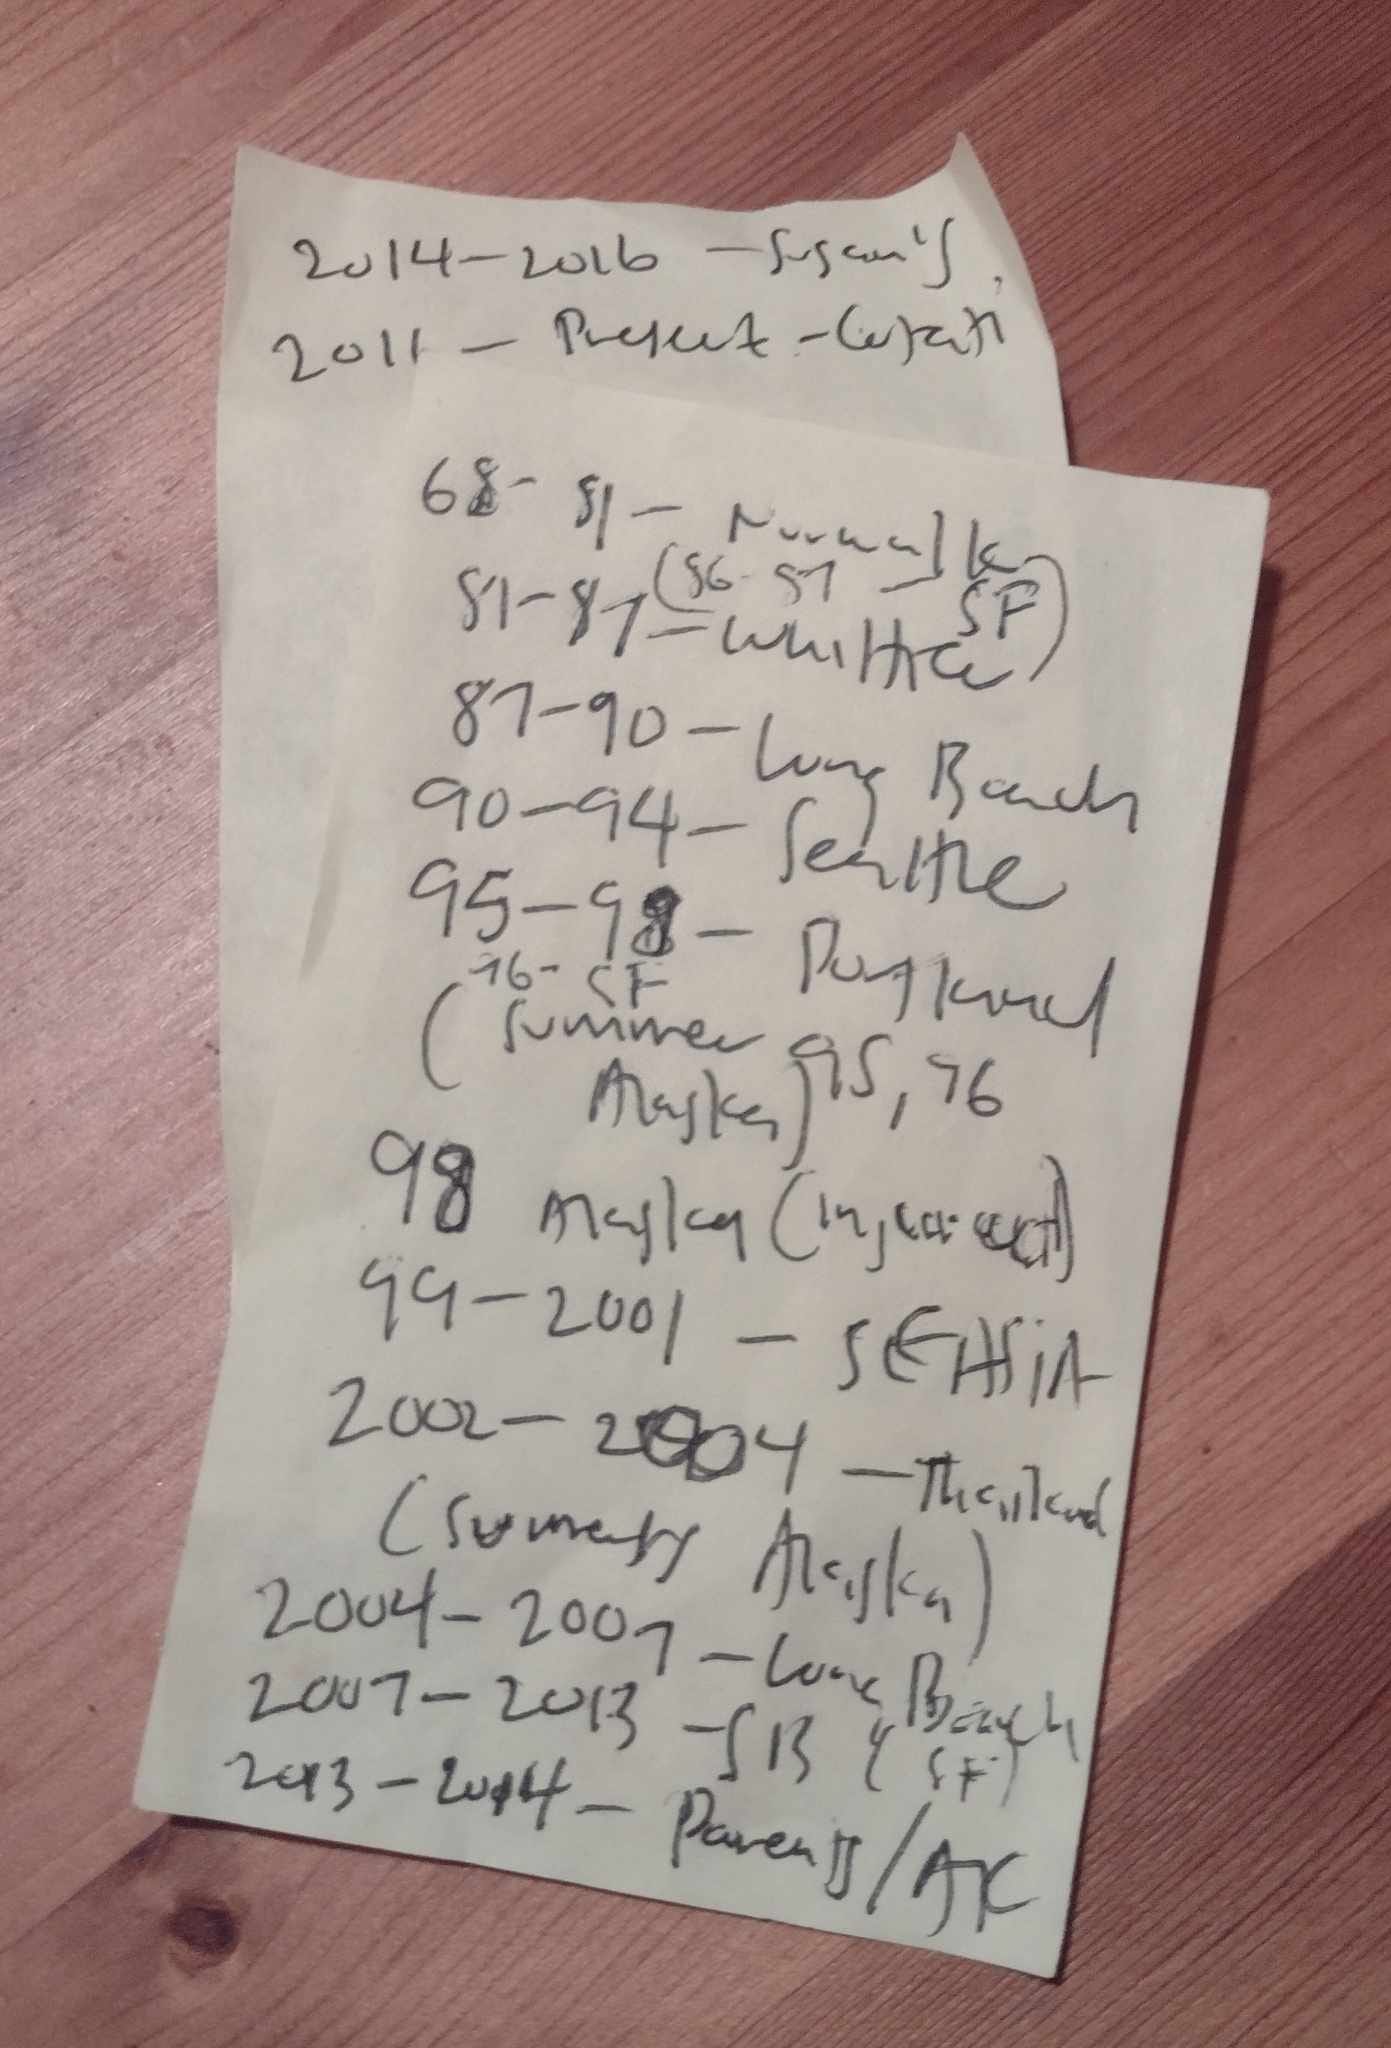 2014-2016 - Susan's
2011 - Present - Cotati
68-81 - Norwalk
(86-87 - SF)
81-87 - Whittier
87-90 - Long Beach
90-94 - Seattle
95-98 - Portland
96- SF
(Summer 95, 96
Alaska)
98 Alaska (injured)
99-2001 - SE ASiA
2002-2004 - Thailand
(Summers Alaska)
2004-2007 - Long Beach
2007-2013 - SB (SF)
2013-2014 - Parents/AK